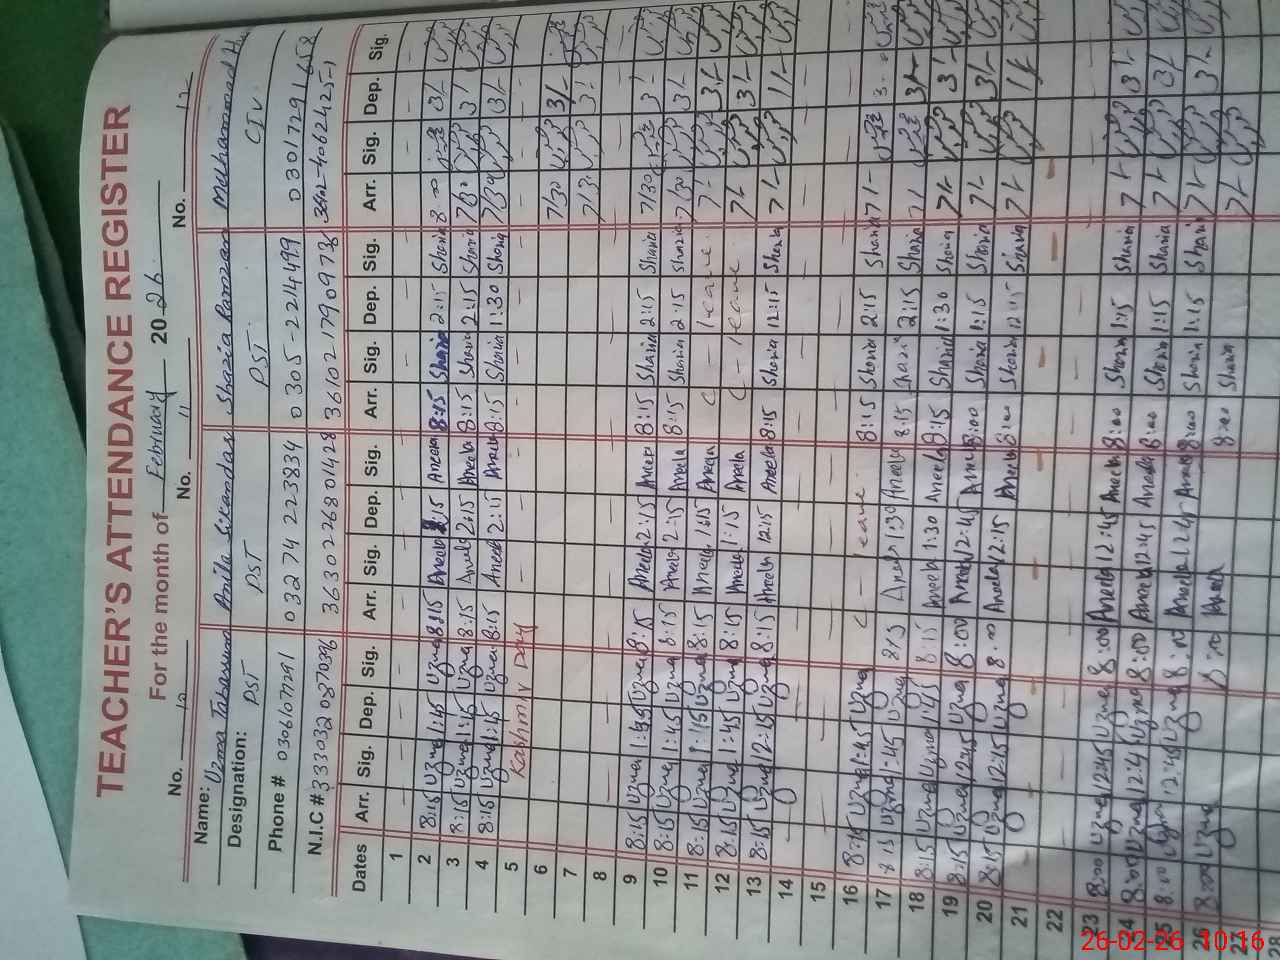 TEACHER'S ATTENDANCE REGISTER
For the month of February 2026
No. 10 No. 11 No. 12
Name: Uzma Tabassum Anila Sikandar Shazia Ramzan Muhammad
Designation: PST PST PST CIV
Phone # 03060677291 03274223834 0305-2214499 03017291658
N.I.C # 3630226801428
Dates Arr. Sig. Dep. Sig. Arr. Sig. Dep. Sig. Arr. Sig. Dep. Sig. Arr. Sig. Dep. Sig.
1
2 8:15 Uzma 1:45 Uzma 8:15 Aneela 2:15 Aneela 8:15 Shazia 2:15 Shazia 8:00 3/-
3 8:15 Uzma 1:45 Uzma 8:15 Aneela 2:15 Aneela 8:15 Shazia 2:15 Shazia 7/30 3/-
4 8:15 Uzma 1:45 Uzma 8:15 Aneela 2:15 Aneela 8:15 Shazia 1:30 Shazia 7/30 3/-
5 Kashmir Day
6 7/30 3/-
7 7/3 3/-
8
9 8:15 Uzma Uzma 8:15 Aneela 2:15 Aneela 8:15 Shazia 2:15 Shazia 7/30 3/-
10 8:15 Uzma 1:45 Uzma 8:15 Aneela 2:15 Aneela 8:15 Shazia 2:15 Shazia 7/30 3/-
11 8:15 Uzma 1:15 Uzma 8:15 Aneela 1:15 Aneela leave 7/- 3/-
12 8:15 Uzma 1:45 Uzma 8:15 Aneela 1:15 Aneela leave 7/- 3/-
13 8:15 Uzma 12:45 Uzma 8:15 Aneela 12:15 Aneela 8:15 Shazia 12:15 Shazia 7/- 1/-
14
15
16 8:15 Uzma 1:45 Uzma leave 8:15 Shazia 2:15 Shazia 7/- 3
17 8:15 Uzma 1:45 Uzma 8:15 Aneela 1:30 Aneela 8:15 Shazia 2:15 Shazia 7/- 3/-
18 8:15 Uzma 1:45 Uzma 8:15 Aneela 1:30 Aneela 8:15 Shazia 1:30 Shazia 7/- 3/-
19 8:15 Uzma 12:45 Uzma 8:00 Aneela 12:45 Aneela 8:00 Shazia 1:15 Shazia 7/- 3/-
20 8:15 Uzma 12:15 Uzma 8:00 Aneela 12:15 Aneela 8:00 Shazia 12:15 Shazia 7/- 1/-
21
22
23 8:00 Uzma 12:45 Uzma 8:00 Aneela 12:45 Aneela 8:00 Shazia 1:15 Shazia 7/- 3/-
24 8:00 Uzma 12:45 Uzma 8:00 Aneela 12:45 Aneela 8:00 Shazia 1:15 Shazia 7/- 3/-
25 8:00 Uzma 12:45 Uzma 8:00 Aneela 12:45 Aneela 8:00 Shazia 1:15 Shazia 7/- 3/-
26 8:00 Uzma 8:00 Aneela 8:00 Shazia 7/-
27
28
26-02-26 10:16